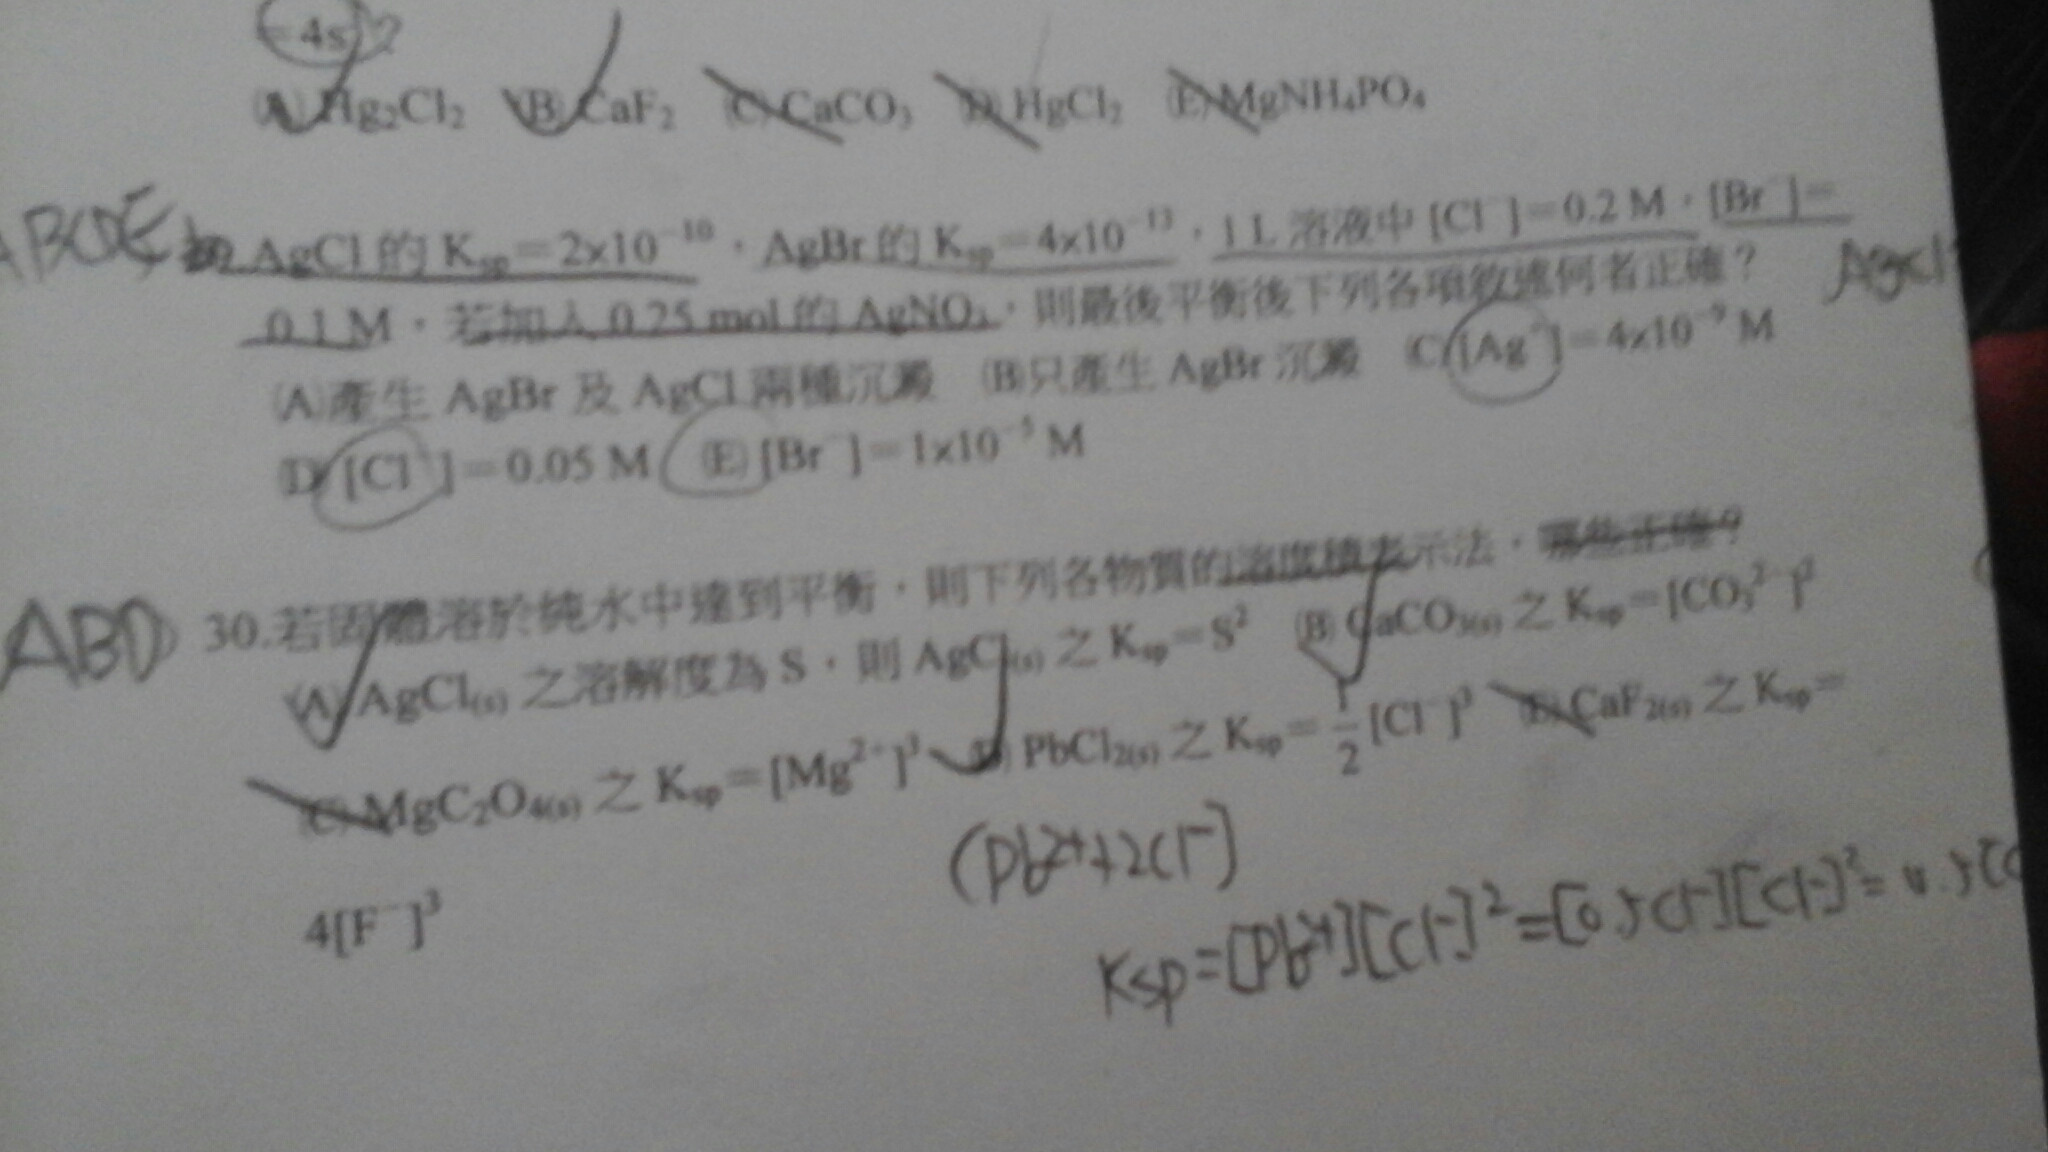 =4s³?
(A)Hg₂Cl₂ (B)CaF₂ (C)CaCO₃ (D)HgCl₂ (E)MgNH₄PO₄
ABCDE AgCl的Ksp=2x10⁻¹⁰，AgBr的Ksp=4x10⁻¹³，1 L 溶液中[Cl⁻]=0.2 M，[Br⁻]=
0.1 M，若加入0.25 mol的AgNO₃，則最後平衡後下列各項敘述何者正確？ AgCl
(A)產生 AgBr 及 AgCl 兩種沉澱 (B)只產生 AgBr 沉澱 (C)[Ag⁺]=4x10⁻⁹ M
(D)[Cl⁻]=0.05 M (E)[Br⁻]=1x10⁻⁵ M
ABD 30.若固體溶於純水中達到平衡，則下列各物質的溶度積表示法，哪些正確？
(A)AgCl(s)之溶解度為S，則AgCl(s)之Ksp=S² (B)CaCO₃(s)之Ksp=[CO₃²⁻]²
(C)MgC₂O₄(s)之Ksp=[Mg²⁺]³ (D)PbCl₂(s)之Ksp=1/2[Cl⁻]³ (E)CaF₂(s)之Ksp=
4[F⁻]³
(Pb²⁺+2Cl⁻)
Ksp=[Pb²⁺][Cl⁻]²=[0.5Cl⁻][Cl⁻]²=0.5[C